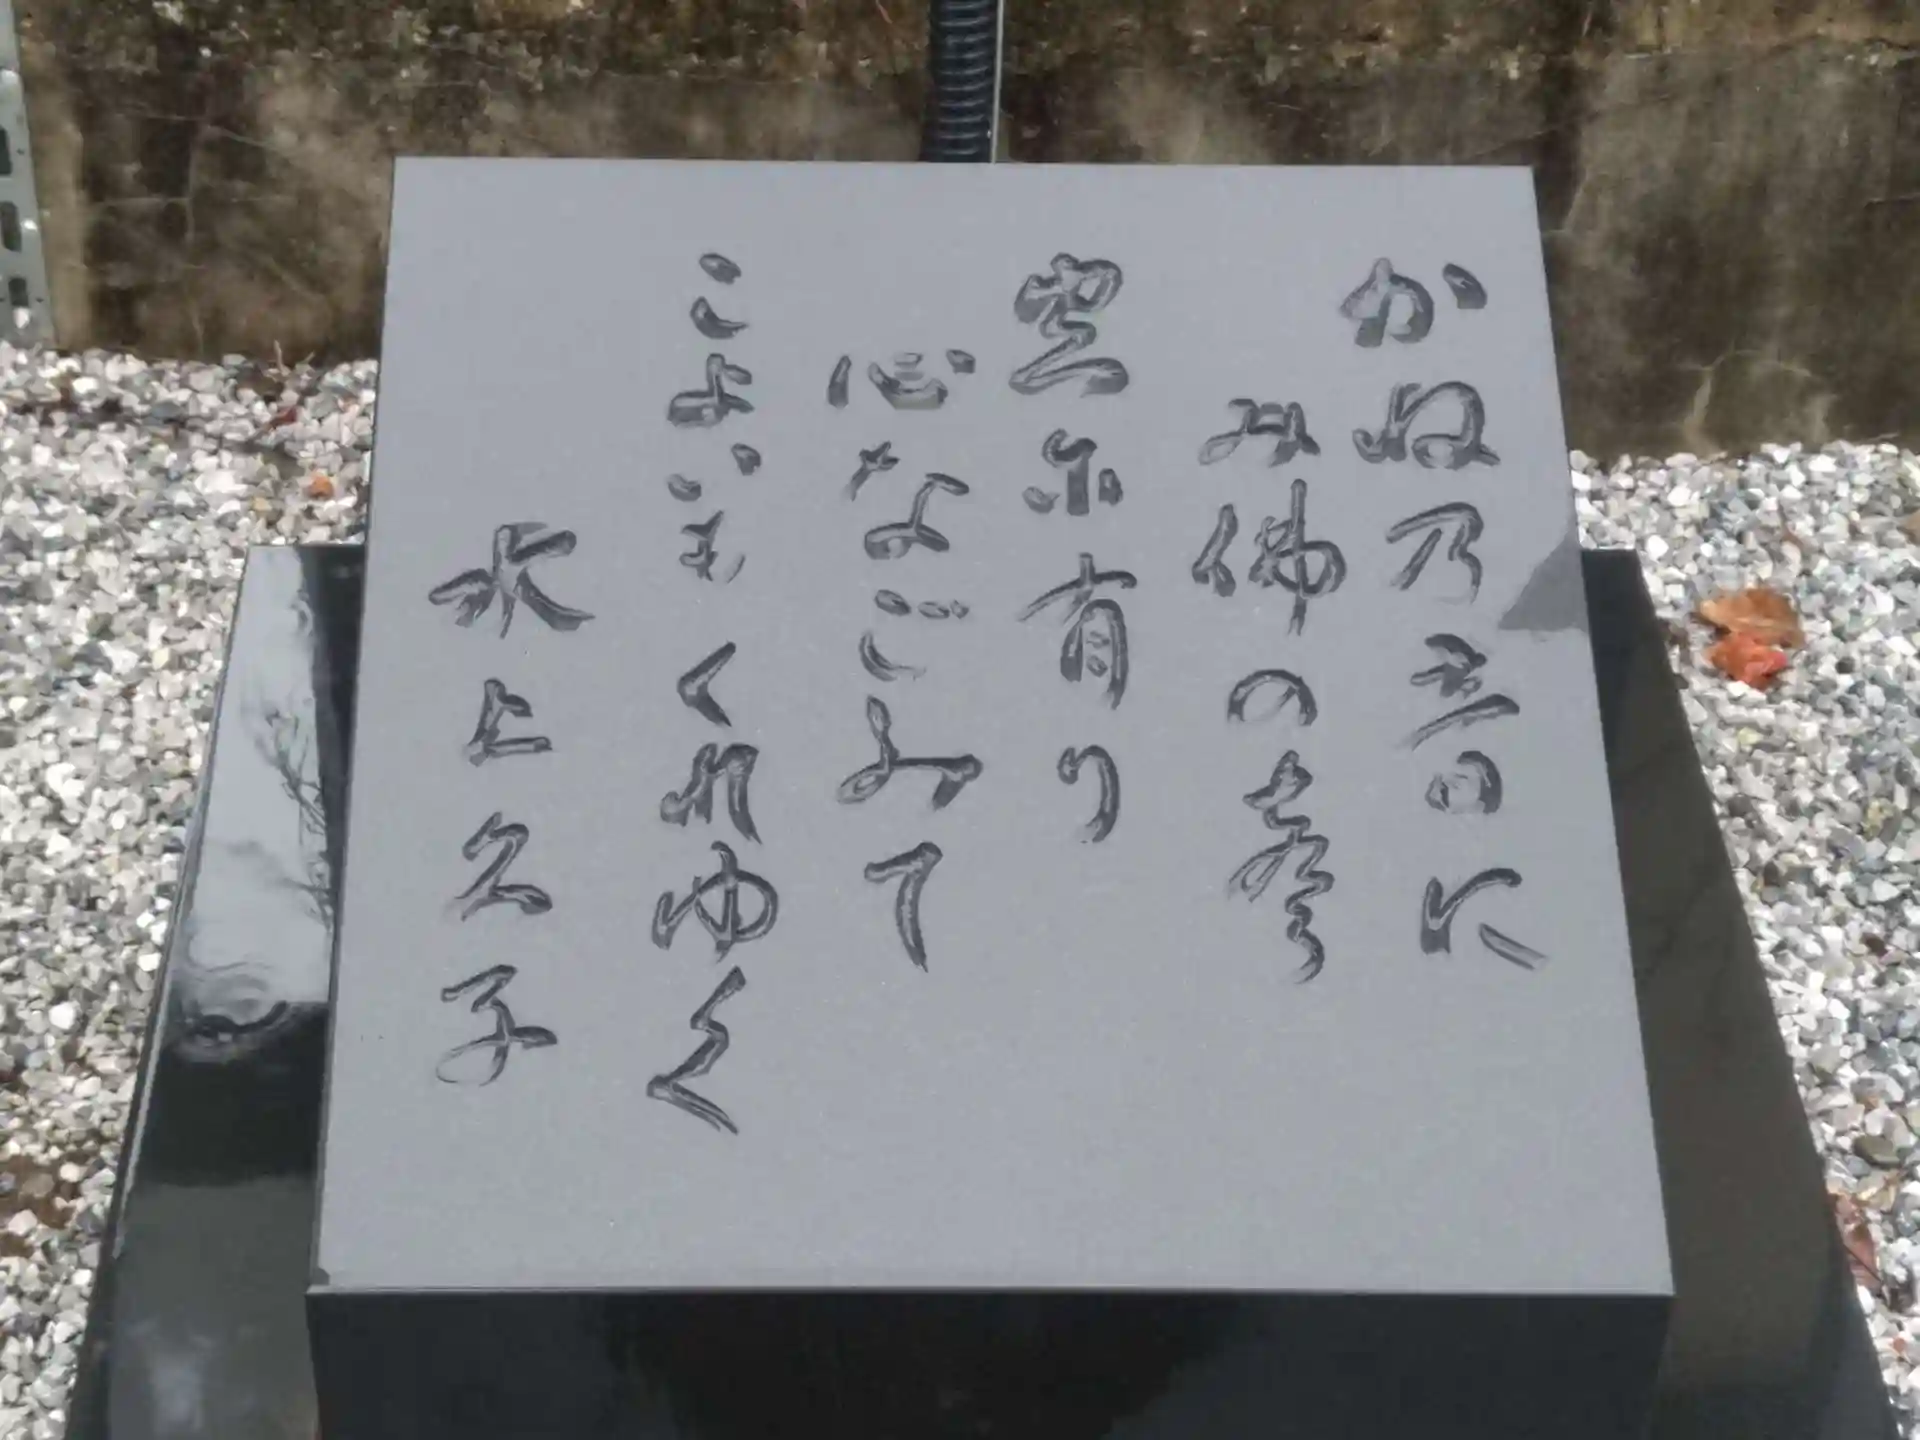 かね乃音に
み佛の声
空尓有り
心なごみて
こよいもくれゆく
水上久子